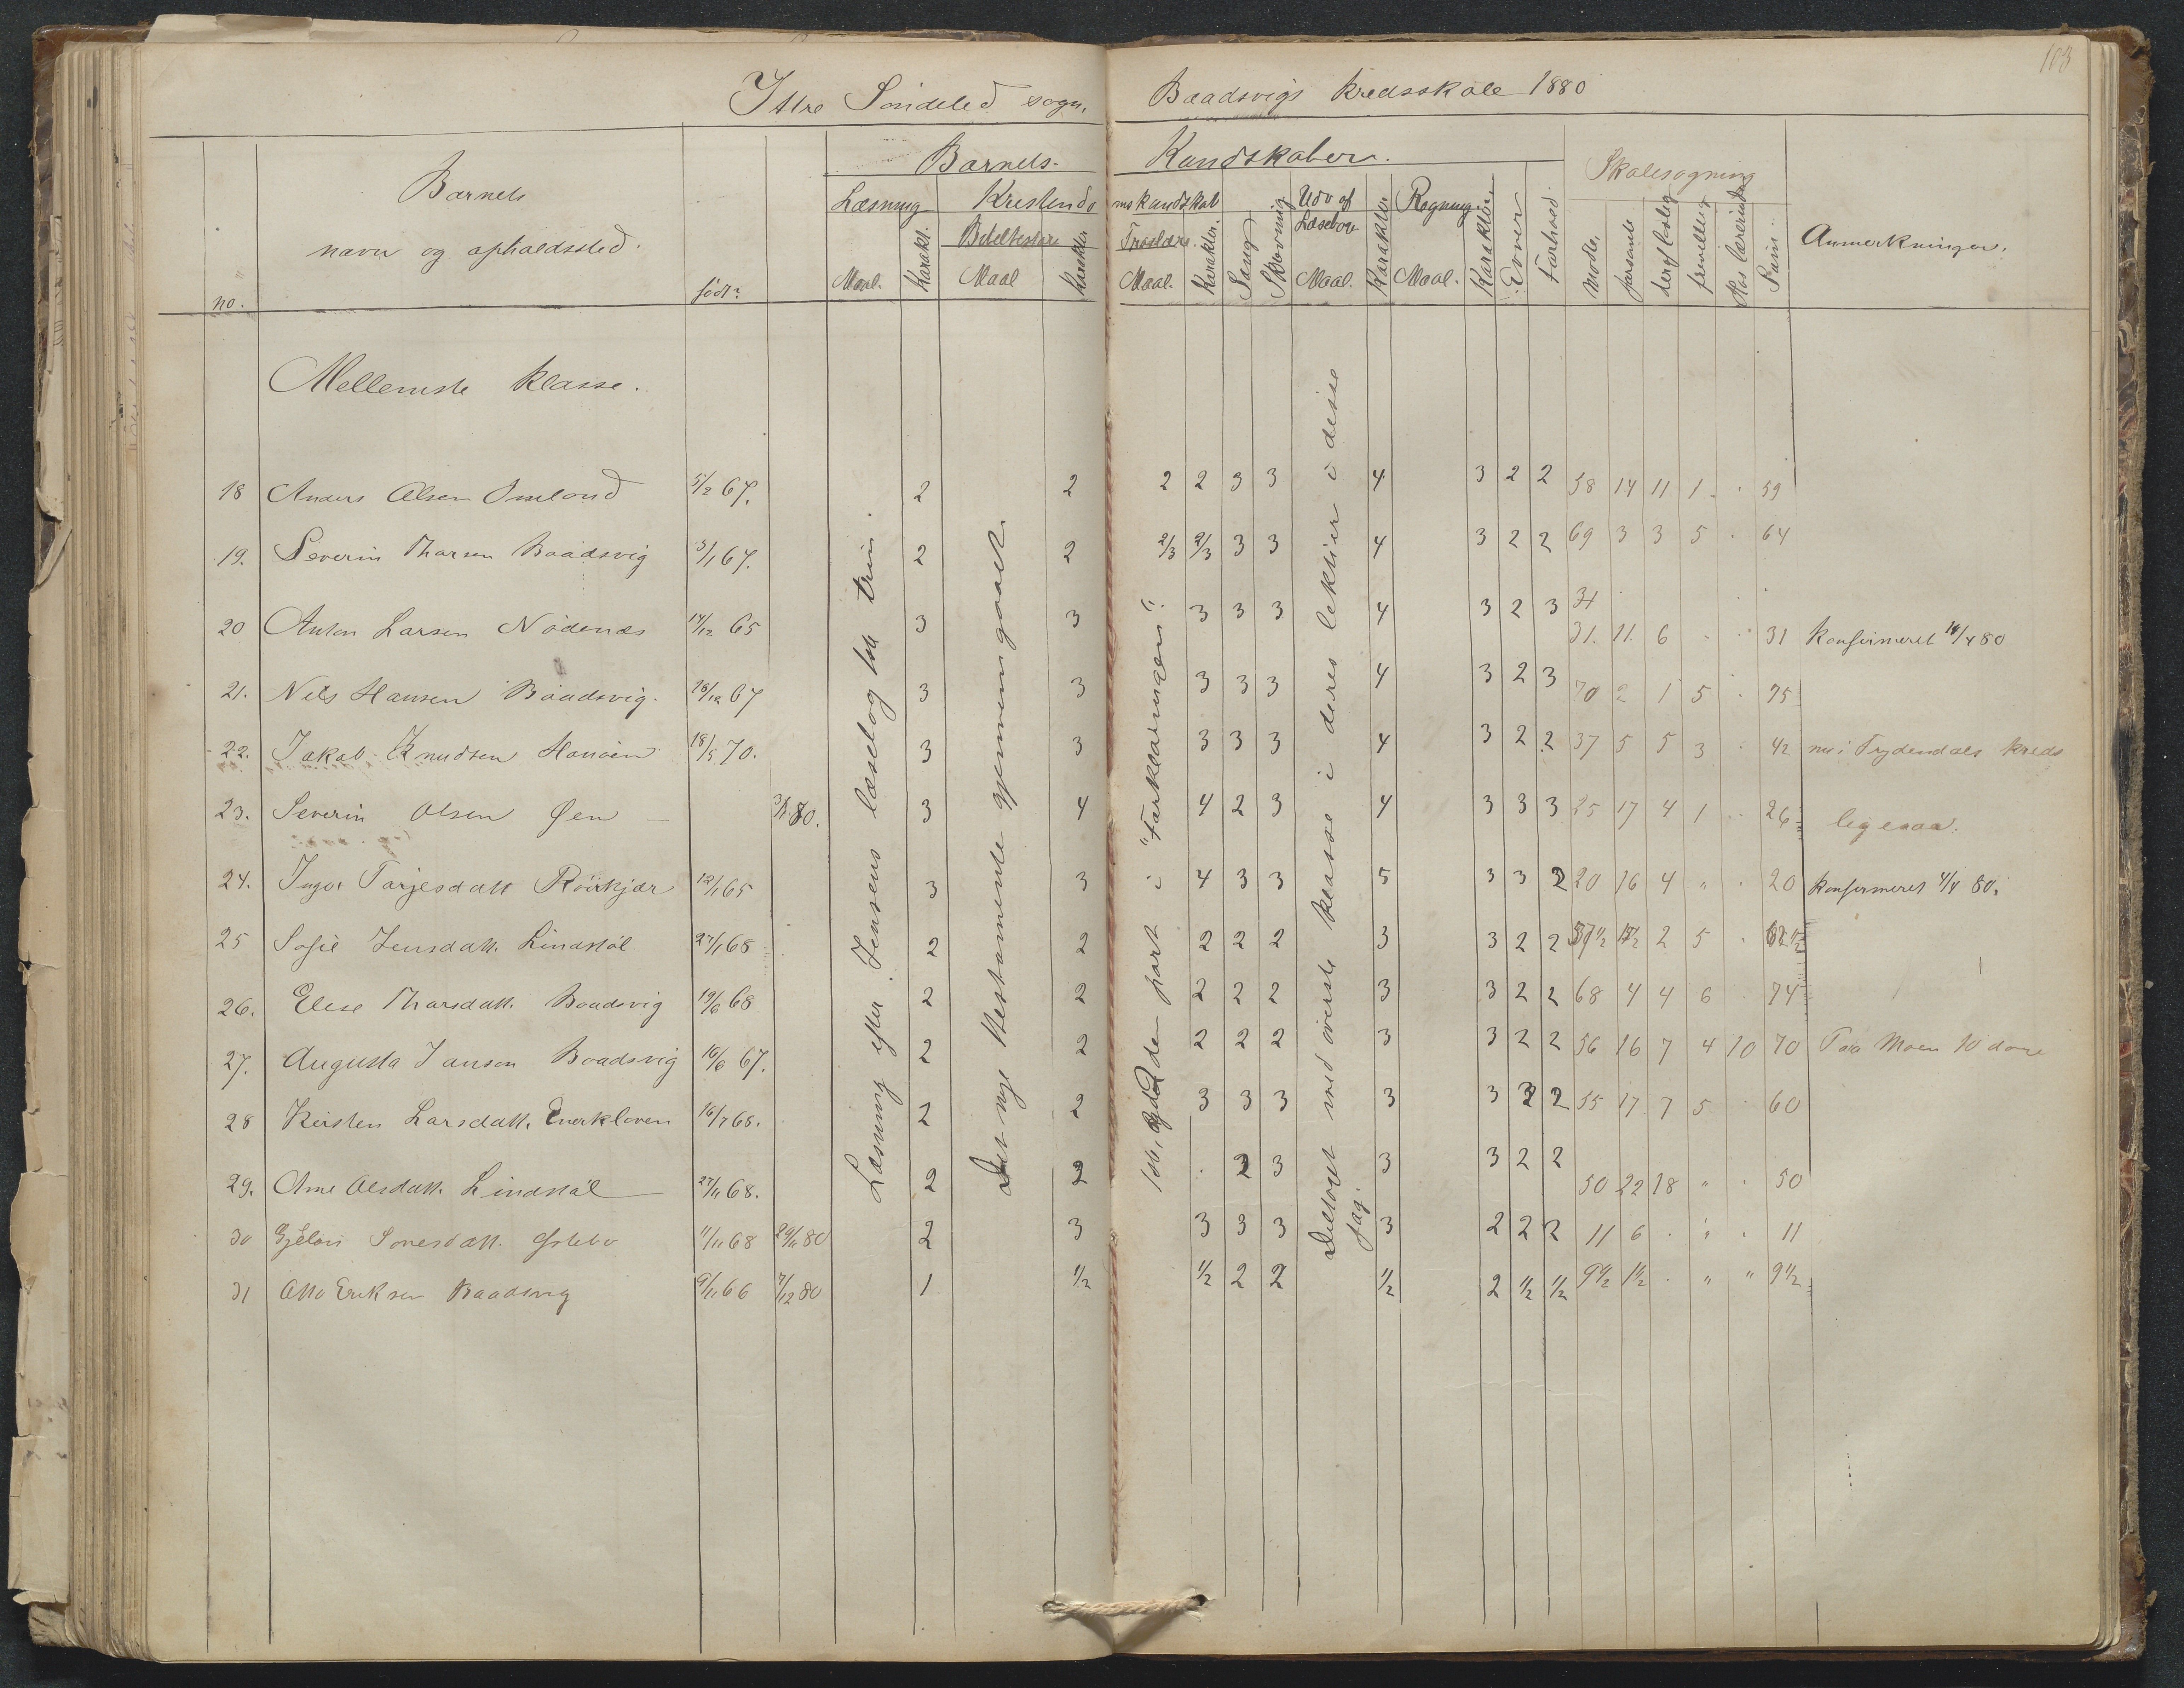 103
Ittre Söndeled sogn. Baadsvigs kredsskole 1880
Barnets Kundskaber. Skolesøgning
Barnets navn og opholdssted. Læsning Kristendomskundskab Udv af Læsebog Regning Anmerkninger.
Troslære
no. født Maal. Karakt. Maal Karakter Maal. Karakter Sang Skrivning Maal. Karakter Maal. Karakter Evner Forhold mødte forsømte deraf lovlig frivillig Hos lærerinde Sum
Mellemste klasse.
18 Anders Olsen 5/2 67. 2 2 2 2 3 3 4 3 2 2 58 14 11 1 . 59
19. Severin Thorsen Baadsvig 3/1 67. 2 2 2/3 2/3 3 3 4 3 2 2 69 3 3 5 . 64
20 Anton Larsen Nödenæs 14/12 65 3 3 3 3 3 4 3 2 3 31. 11. 6 . . 31 Konfirmeret 14/4 80
21. Nils Hansen Baadsvig. 16/12 67 3 3 3 3 3 4 3 2 3 70 2 1 5 . 75
22. Jakob Knudsen 18/5 70. 3 3 3 3 3 4 3 2 2 37 5 5 3 . 42 nu i Trydendals kreds
23. Severin Olsen Øen 3 4 4 2 3 4 3 3 3 25 17 4 1 . 26 ligesaa.
24. Inger Tarjesdatt Röirkjær 12/1 65 3 3 4 3 3 5 3 3 2 20 16 4 " . 20 Konfirmeret 4/4 80.
25 Sofie Jensdatt. Lindstöl 27/1 68 2 2 2 2 2 3 3 2 2 57½ 2 5 . 62½
26. Elise Thorsdatt. Baadsvig 19/6 68 2 2 2 2 2 3 3 2 2 68 4 4 6 . 74
27. Augusta Janson Baadsvig 16/6 67. 2 2 2 2 2 3 3 2 2 56 16 7 4 10 70 Paa Moen 10 dage
28 Kirsten Larsdatt. Enerkloven 16/7 68. 2 2 3 3 3 3 3 2 2 55 17 7 5 . 60
29. Ane Olsdatt. Lindstöl 27/11 68. 2 2 . 3 3 3 3 2 2 50 22 18 " . 50
30 11/11 68 29/11 80 2 3 3 3 3 3 2 2 2 11 6 . " . 11
31 Otto Eriksen Baadsvig 9/11 66 7/12 80 1 1/2 1/2 2 2 1/2 2 1/2 1/2 9½ 1½ . " " 9½
Læsning efter Jensens læsebog 1ste trin.
Det nye testamente gjennemgaaet.
1ste og 2den part i "Forklaringen".
Deltaget med øverste klasse i deres lektier i disse fag.